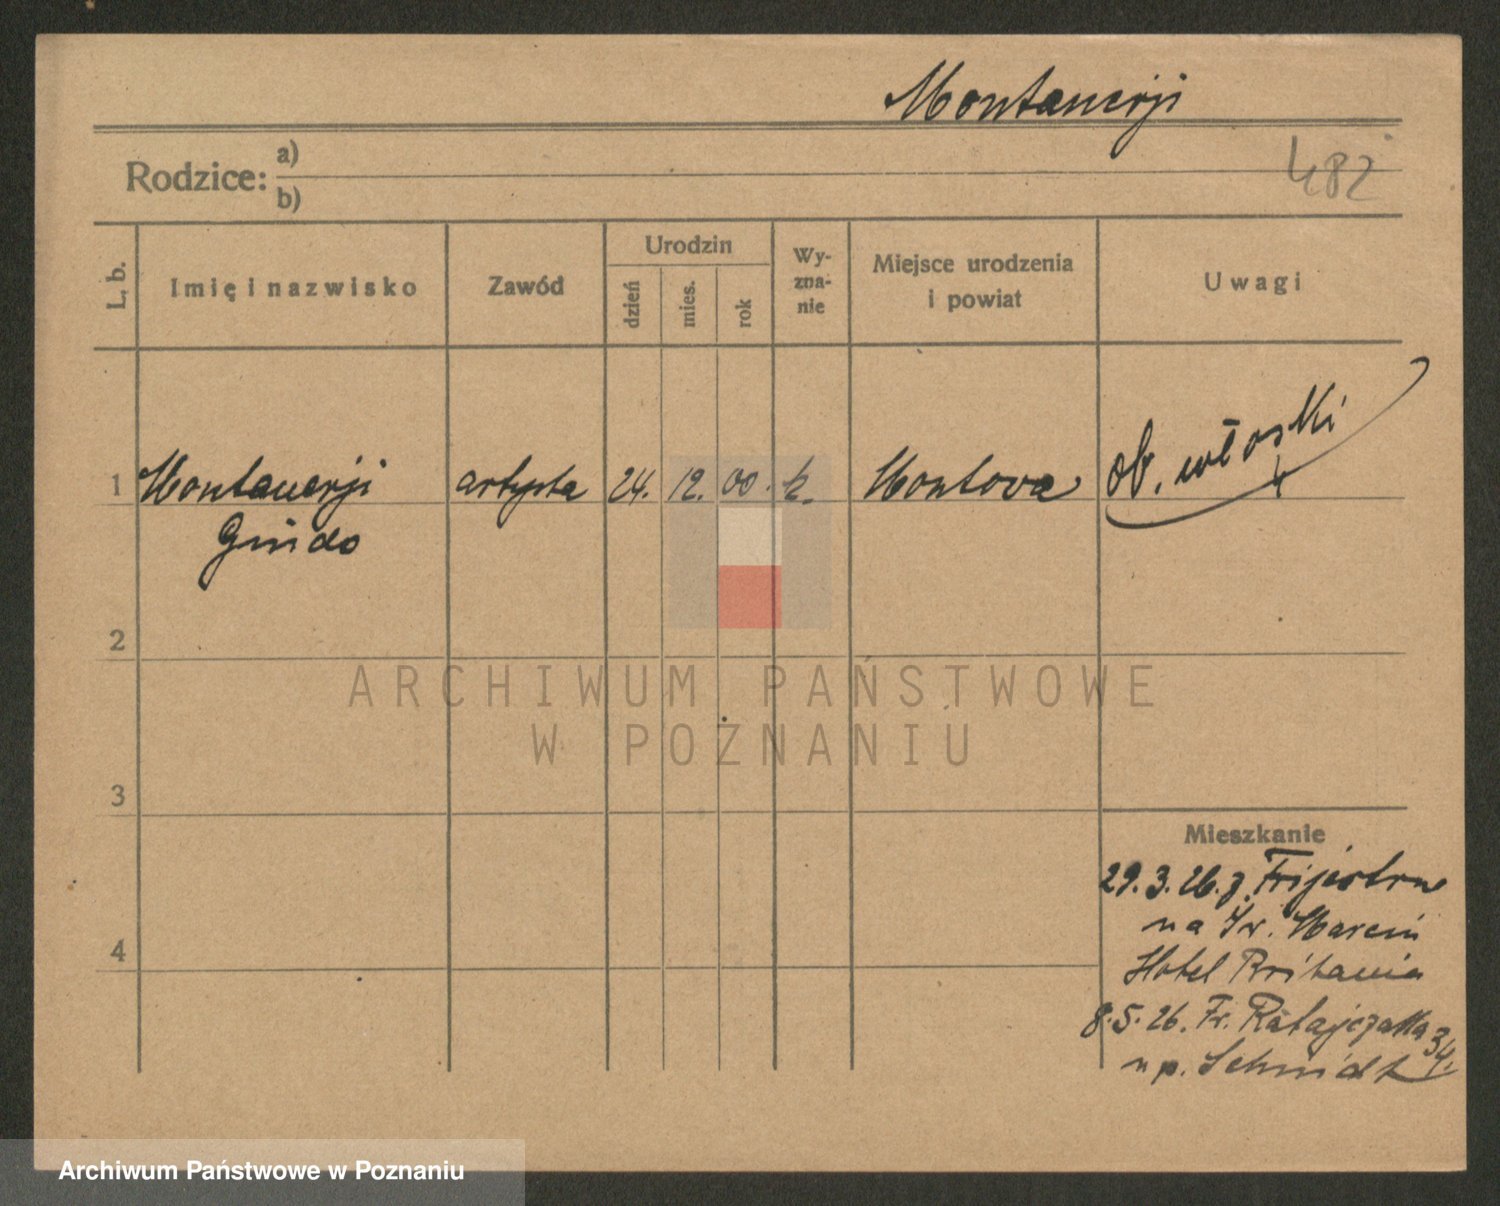 Montanerji
482
Rodzice: a)
b)
L. b.
Imię i nazwisko
Zawód
Urodzin
dzień
mies.
rok
Wy-
zna-
nie
Miejsce urodzenia
i powiat
Uwagi
1 Montanerji artysta 24. 12. 00. k. Montova ob. włoski
Guido
2
3
4
Mieszkanie
29.3.26. z
na Św. Marcin
Hotel Britania
8.5.26. Fr. Ratajczaka 34.
u p. Schmidt
ARCHIWUM PAŃSTWOWE
W POZNANIU
Archiwum Państwowe w Poznaniu